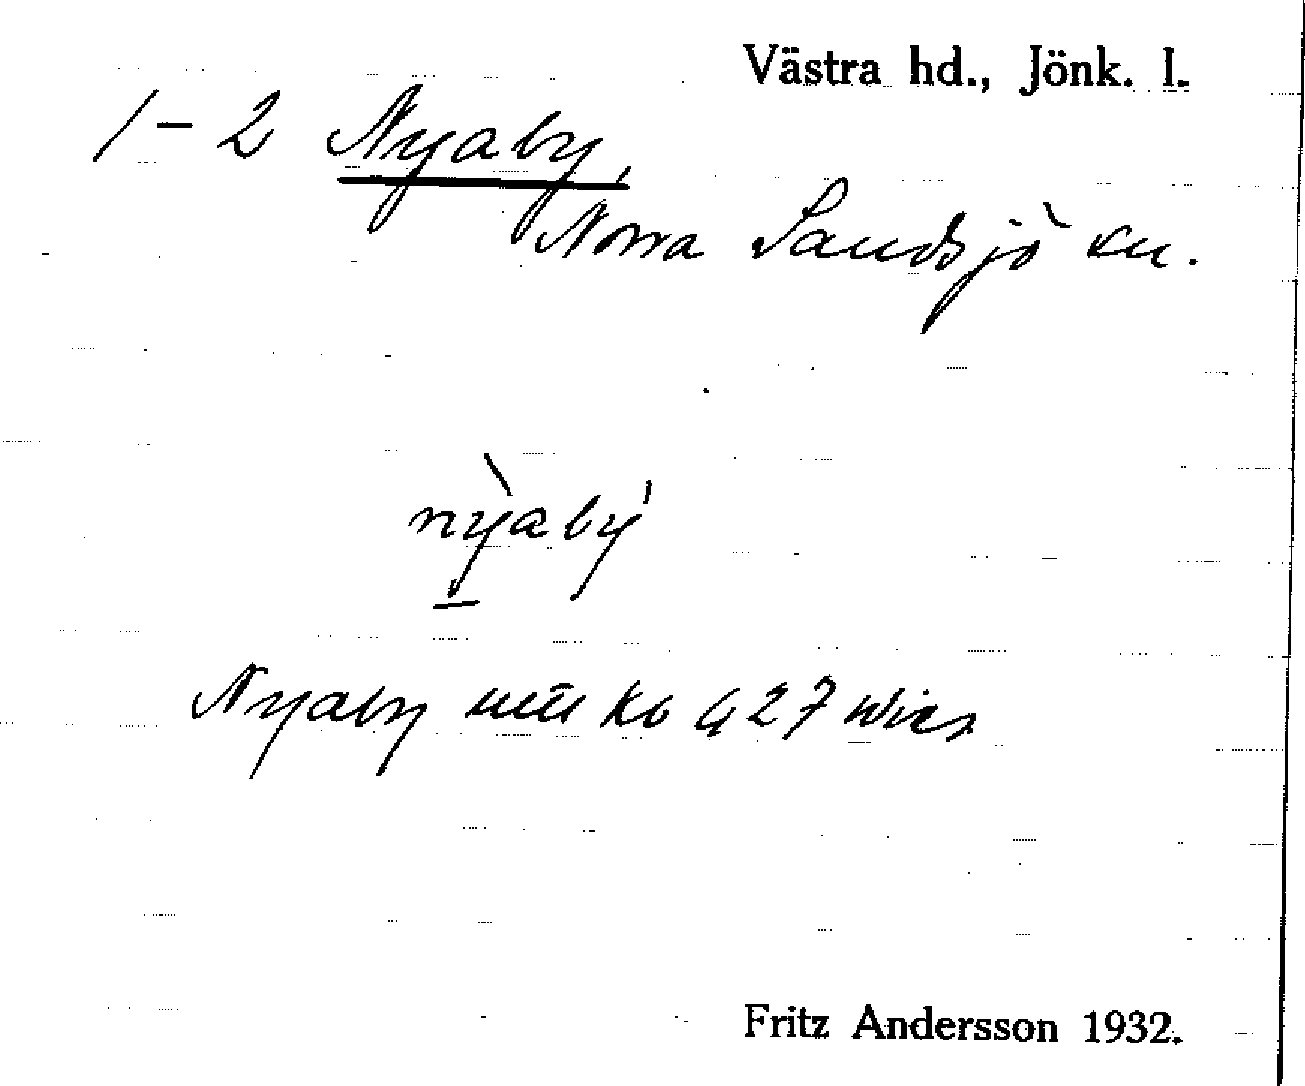 Västra hd., Jönk. l.
1-2 Nyaby,
Norra Sandsjö sn.
nỳabý
Nyaby Kb 427
Fritz Andersson 1932.